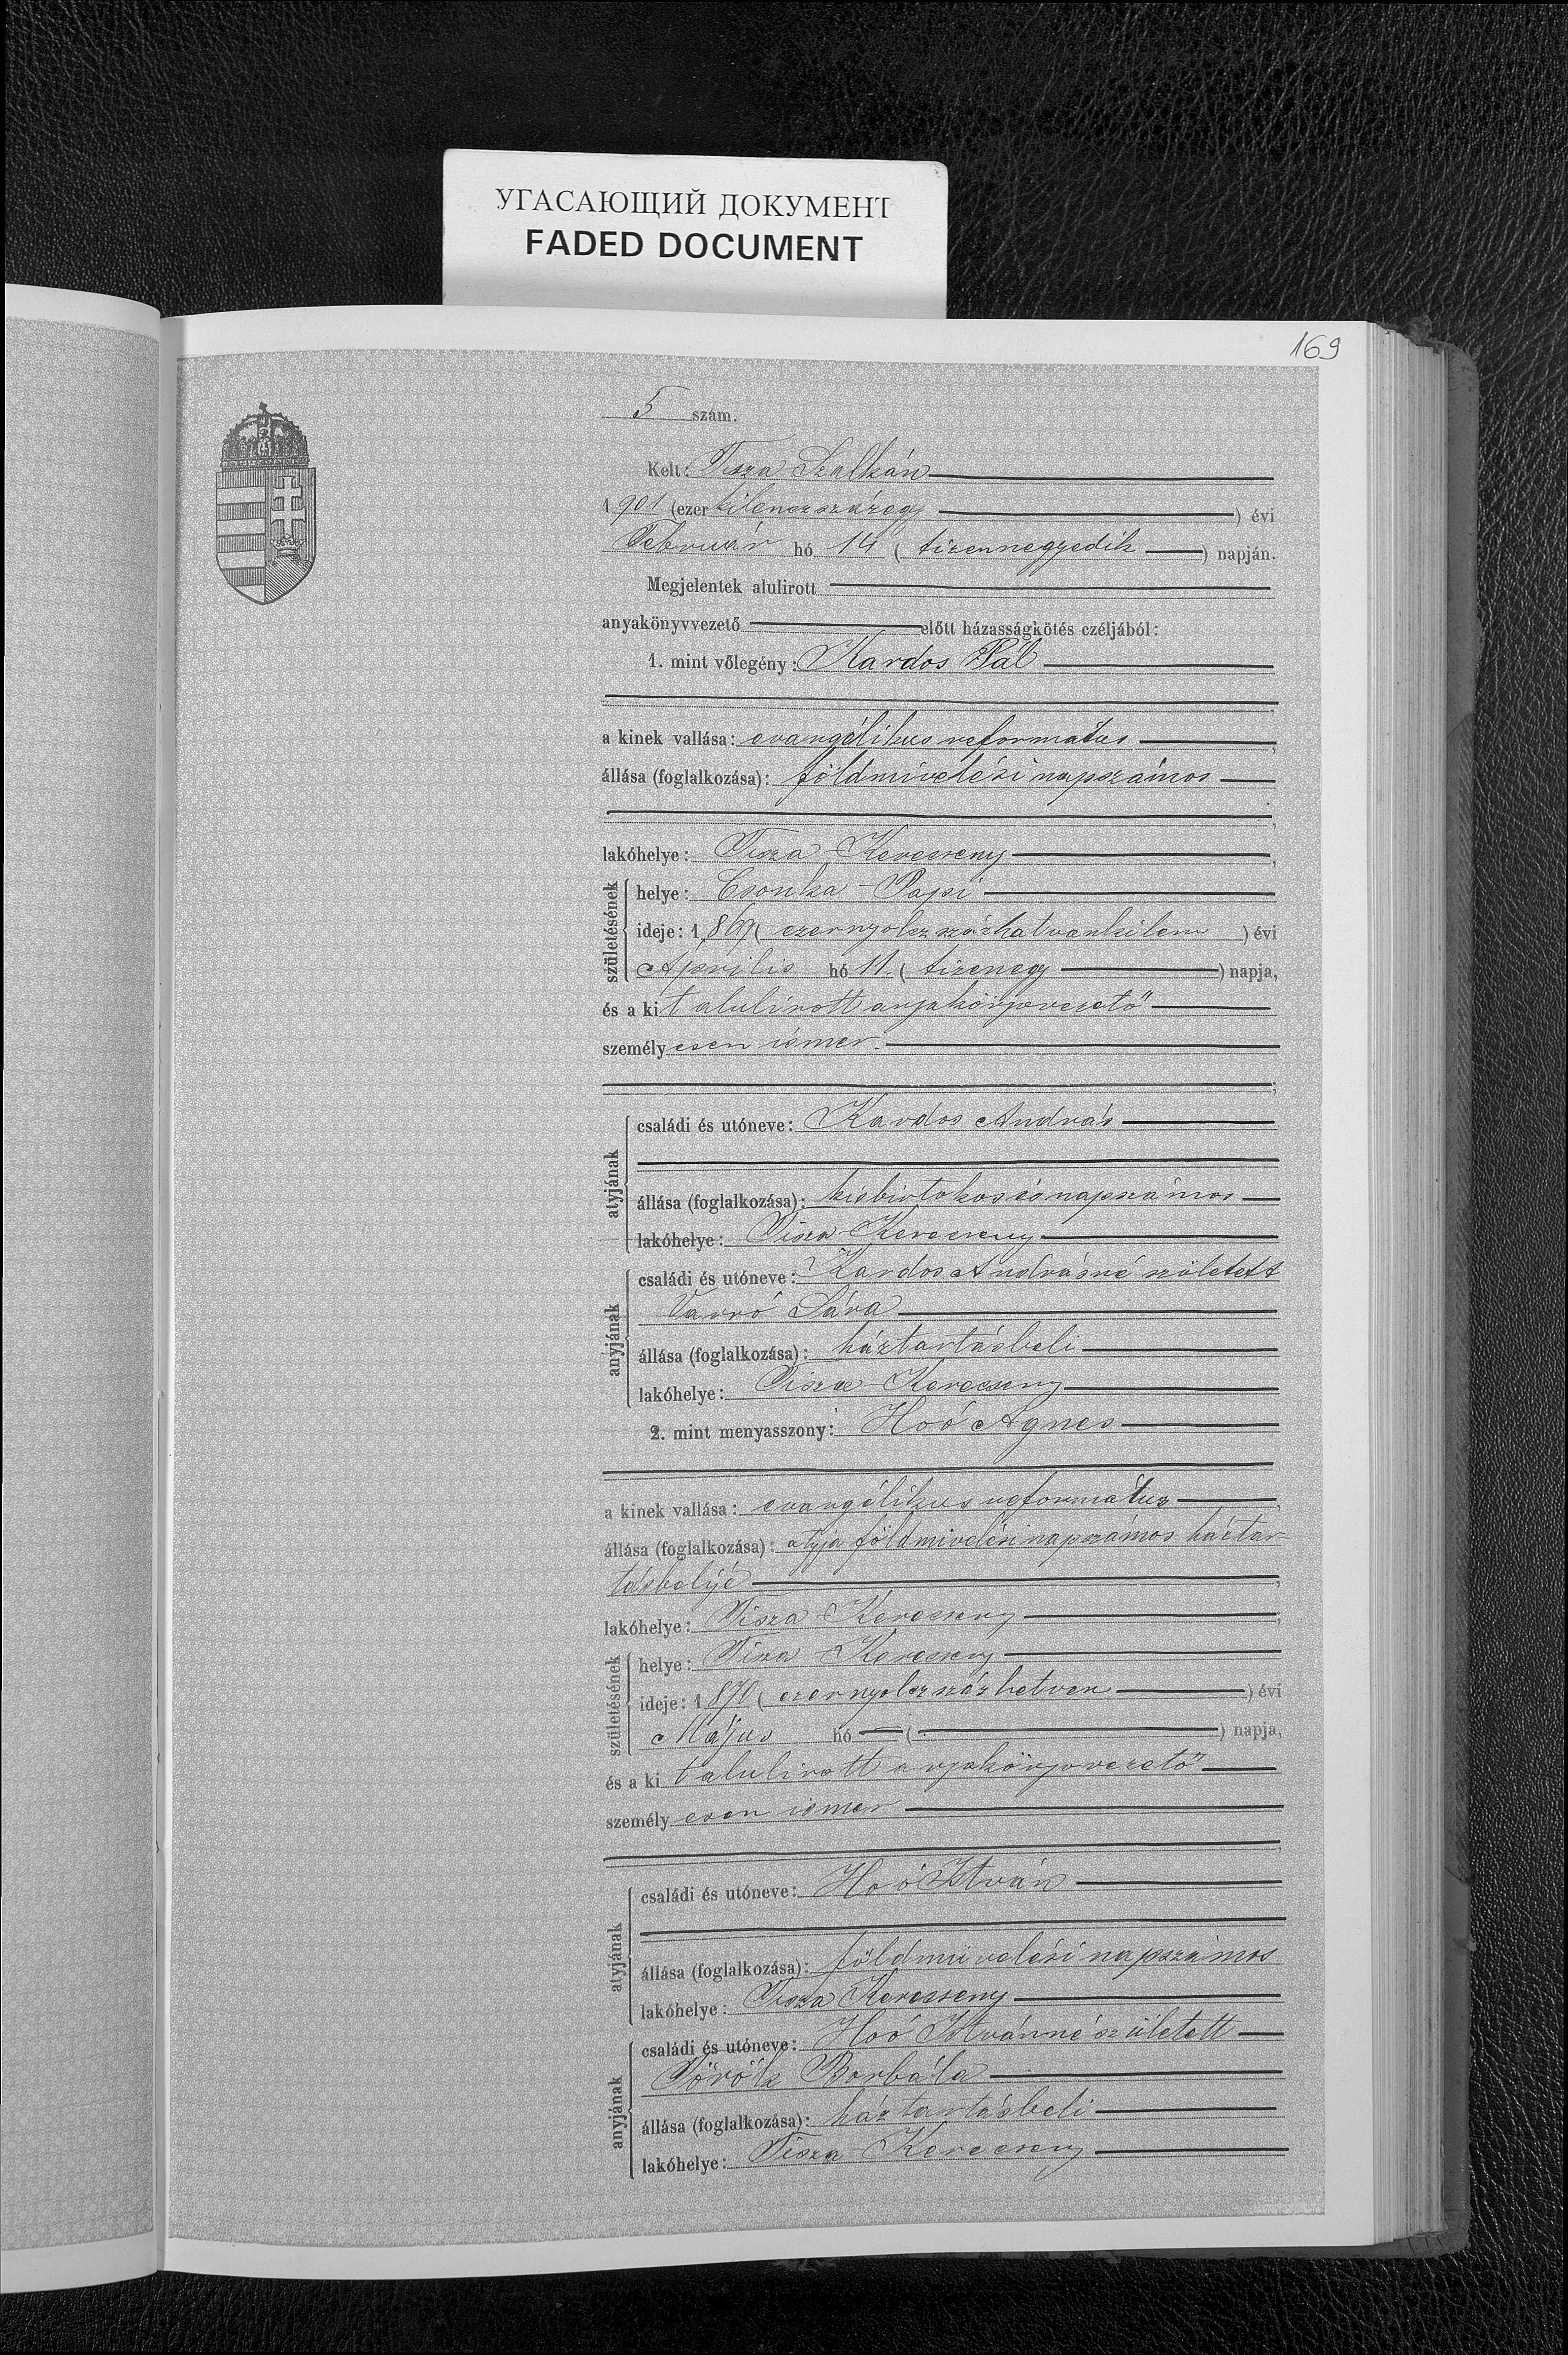 УГАСАЮЩИЙ ДОКУМЕНТ
FADED DOCUMENT
169
5 szám.
Kelt: Tisza Szalkán
1901 (ezer kilenczszázegy) évi
Február hó 14 (tizennegyedik) napján.
Megjelentek alulirott
anyakönyvvezető előtt házasságkötés czéljából:
1. mint vőlegény: Kardos Pál
a kinek vallása: evangélikus reformatus,
állása (foglalkozása): földmivelési napszámos
lakóhelye: Tisza Kerecseny,
születésének
helye: Csonka Papi
ideje: 1869 (ezernyolczszázhatvankilencz) évi
Április hó 11. (tizenegy) napja,
és a kit alulirott anyakönyvvezető
személyesen ismer.
atyjának
családi és utóneve: Kardos András
állása (foglalkozása): kisbirtokos és napszámos
lakóhelye: Tisza Kerecseny
anyjának
családi és utóneve: Kardos Andrásné született
Varró Sára
állása (foglalkozása): háztartásbeli
lakóhelye: Tisza Kerecseny
2. mint menyasszony: Hoó Ágnes
a kinek vallása: evangélikus reformatus,
állása (foglalkozása): atyja földmivelési napszámos háztar-
tásbelijé,
lakóhelye: Tisza Kerecseny,
születésének
helye: Tisza Kerecseny
ideje: 1870 (ezernyolczszázhetven) évi
Május hó ( ) napja,
és a kit alulirott anyakönyvvezető
személyesen ismer
atyjának
családi és utóneve: Hoó István
állása (foglalkozása): földmivelési napszámos
lakóhelye: Tisza Kerecseny
anyjának
családi és utóneve: Hoó Istvánné született
Török Borbála
állása (foglalkozása): háztartásbeli
lakóhelye: Tisza Kerecseny